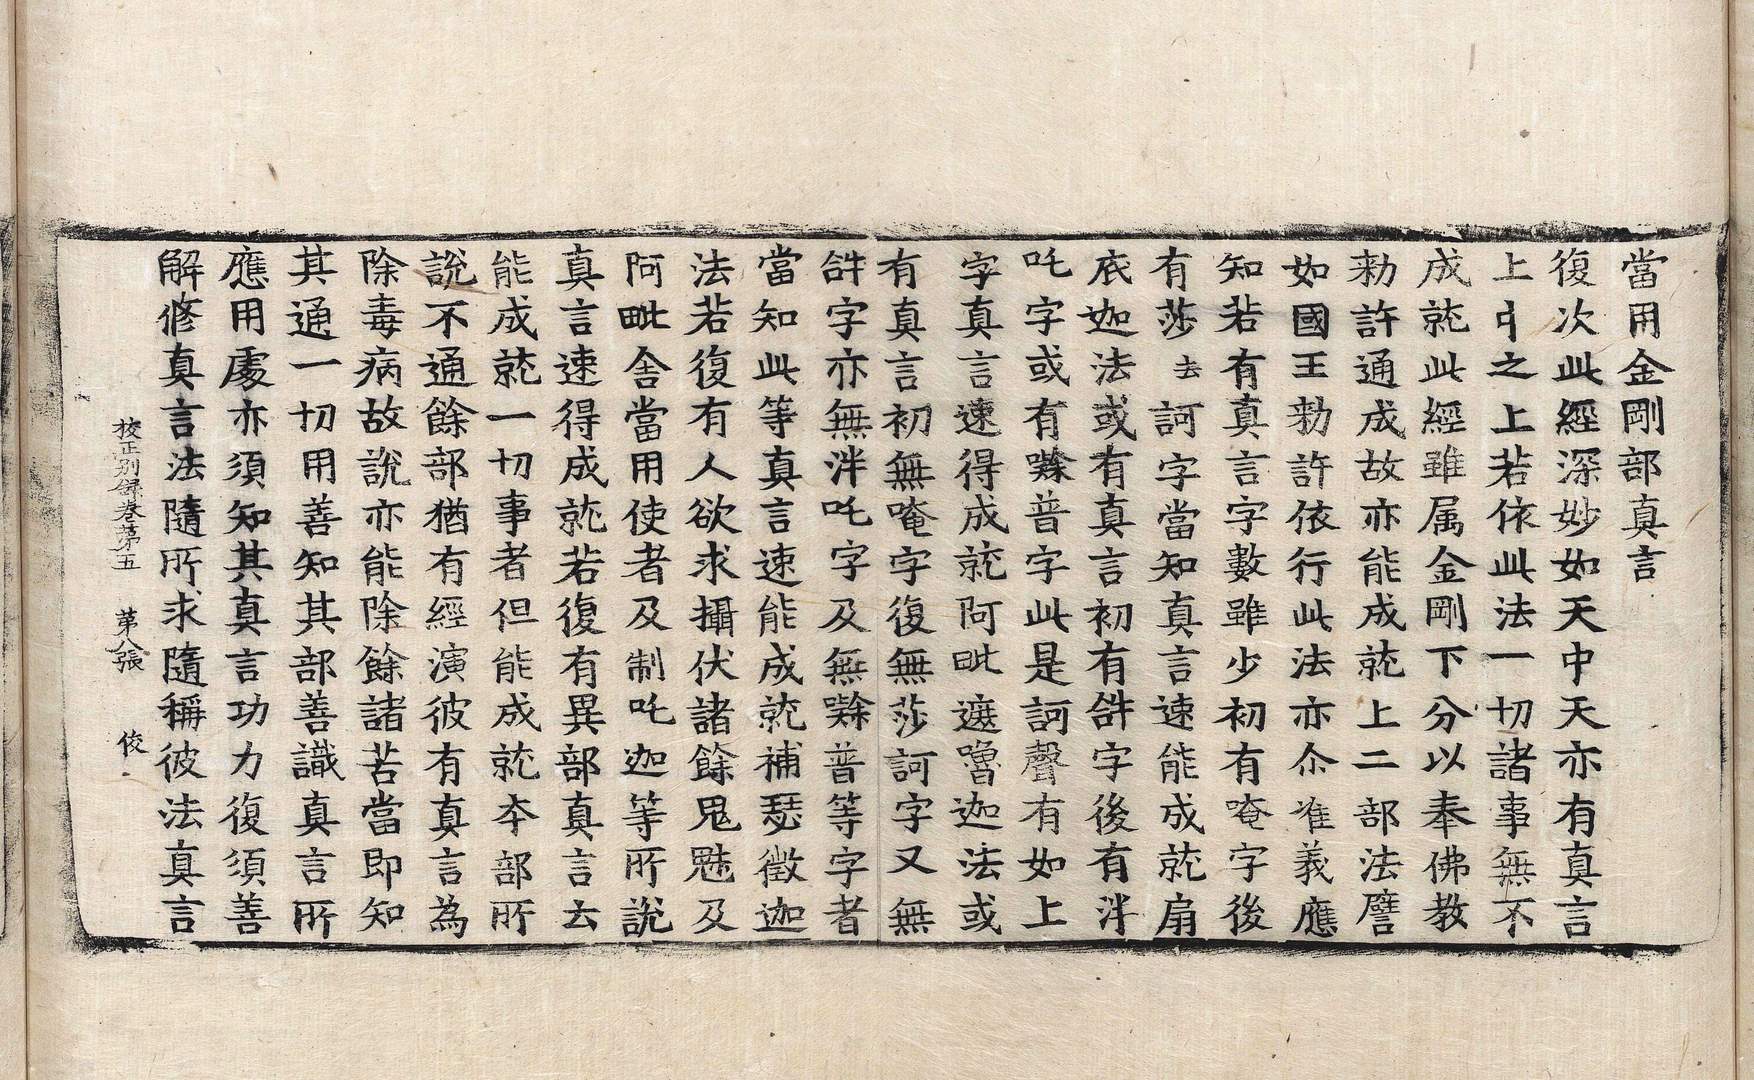 當用金剛部真言
復次此經深妙如天中天亦有真言
上中之上若依此法一切諸事無不
成就此經雖属金剛下分以奉佛教
勑許通成故亦能成就上二部法譬
如國王勑許依行此法亦尒准義應
知若有真言字數雖少初有唵字後
有莎去訶字當知真言速能成就扇
底迦法或有真言初有𤙖字後有泮
吒字或有㘑普字此是訶聲有如上
字真言速得成就阿毗遮嚕迦法或
有真言初無唵字復無莎訶字又無
𤙖字亦無泮吒字及無㘑普等字者
當知此等真言速能成就補瑟徵迦
法若復有人欲求攝伏諸餘鬼魅及
阿毗舍當用使者及制吒迦等所說
真言速得成就若復有異部真言云
能成就一切事者但能成就本部所
說不通餘部猶有經演彼有真言為
除毒病故說亦能除餘諸苦當即知
其通一切用善知其部善識真言所
應用處亦須知其真言功力復須善
解修真言法隨所求隨稱彼法真言
校正別錄卷第五 第八張 俊